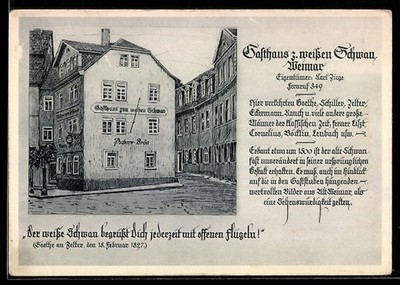 Gasthaus z. weißen Schwan
Weimar
Eigentümer: Karl
Fernruf 849
Hier verkehrten Goethe, Schiller, Zelter,
Eckermann, Rauch u. viele andere große
Männer der klassischen Zeit, ferner Liszt,
Cornelius, Böcklin, Lenbach usw.
Erbaut etwa um 1500 ist der alte Schwan
fast unverändert in seiner ursprünglichen
Gestalt erhalten. Er muß, auch im Hinblick
auf die in den Gaststuben hängenden
wertvollen Bilder aus Alt-Weimar, als
eine Sehenswürdigkeit gelten.
Gasthaus zum weißen Schwan
Pschorr-Bräu
„Der weiße Schwan begrüßt Dich jederzeit mit offenen Flügeln!"
(Goethe an Zelter, den 18. Februar 1827.)